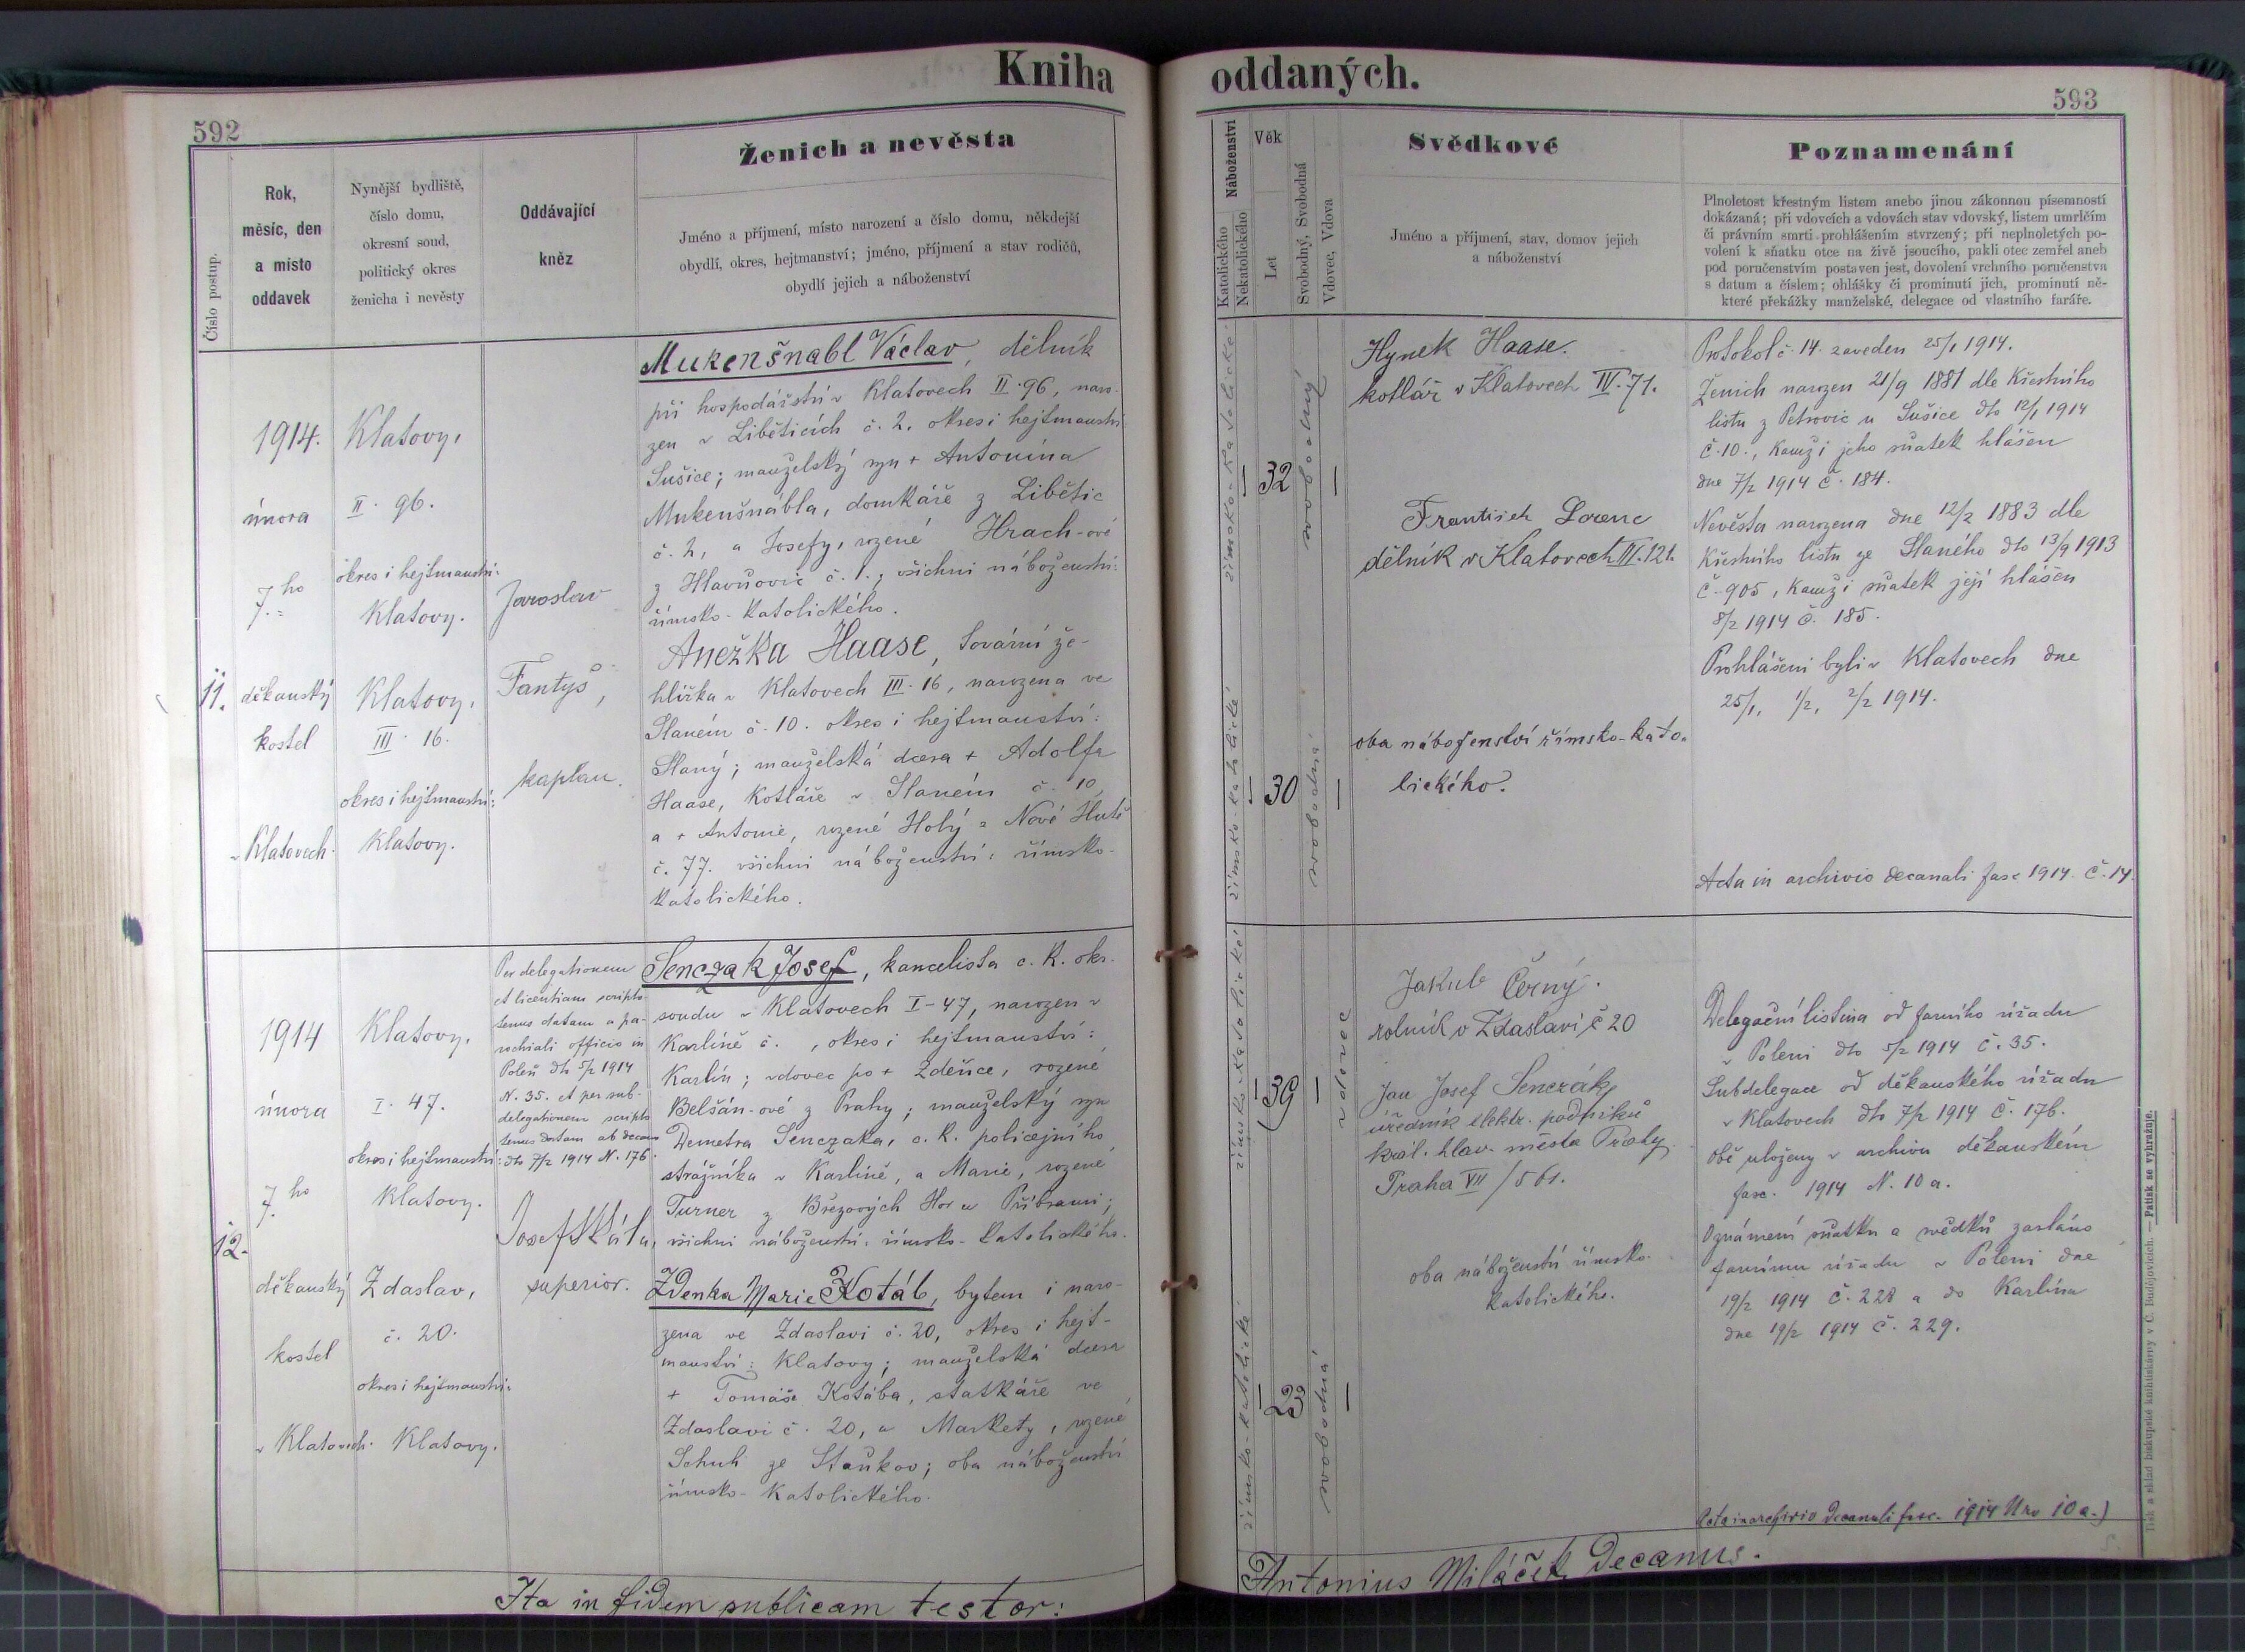 Kniha
592
Číslo postup.
Rok,
měsíc, den
a místo
oddavek
Nynější bydliště,
číslo domu,
okresní soud,
politický okres
ženicha i nevěsty
Oddávající
kněz
Ženich a nevěsta
Jméno a příjmení, místo narození a číslo domu, někdejší
obydlí, okres, hejtmanství; jméno, příjmení a stav rodičů,
obydlí jejich a náboženství
11.
1914.
února
7.ho
děkanský
kostel
v Klatovech.
Klatovy,
II. 96.
okres i hejtmanství:
Klatovy.
Klatovy,
III. 16.
okres i hejtmanství:
Klatovy.
Jaroslav
Fantyš,
kaplan.
Mukenšnabl Václav, dělník
při hospodářství v Klatovech II. 96, naro-
zen v Liběticích č. 2. okres i hejtmanství
Sušice; manželský syn + Antonína
Mukenšnábla, domkáře z Libětic
č. 2, a Josefy, rozené Hrach-ové
z Hlavňovic č. 1., všichni náboženství:
římsko-katolického.
Anežka Haase, tovární že-
hlířka v Klatovech III. 16, narozena ve
Slaném č. 10. okres i hejtmanství:
Slaný; manželská dcera + Adolfa
Haase, kotláře v Slaném č. 10,
a + Antonie, rozené Holý z Nové Hutě
č. 77. všichni náboženství: římsko-
katolického.
12.
1914
února
7.ho
děkanský
kostel
v Klatovech.
Klatovy,
I. 47.
okres i hejtmanství:
Klatovy.
Zdaslav,
č. 20.
okres i hejtmanství:
Klatovy.
Per delegationem
et licentiam scripto-
tenus datam a pa-
rochiali officio in
Poleň dto 5/2 1914
N. 35. et per sub-
delegationem scripto
tenus datam ab decano
dto 7/2 1914 N. 176.
Josef Skála,
superior.
Senczak Josef, kancelista c. k. okr.
soudu v Klatovech I-47, narozen v
Karlíně č. , okres i hejtmanství:
Karlín; vdovec po + Zdeňce, rozené
Belšán-ové z Prahy; manželský syn
Demetra Senczaka, c. k. policejního
strážníka v Karlíně, a Marie, rozené
Turner z Březových Hor u Příbrami;
všichni náboženství: římsko-katolického.
Zdenka Marie Kotáb, bytem i naro-
zena ve Zdaslavi č. 20, okres i hejt-
manství: Klatovy; manželská dcera
+ Tomáše Kotába, statkáře ve
Zdaslavi č. 20, a Markety, rozené
Schuh ze Staňkov; oba náboženství
římsko-katolického.
Ita in fidem publicam testor:
oddaných.
593
Náboženství
Katolického
Nekatolického
Věk
Let
Svobodný, Svobodná
Vdovec, Vdova
Svědkové
Jméno a příjmení, stav, domov jejich
a náboženství
Poznamenání
Plnoletost křestným listem anebo jinou zákonnou písemností
dokázaná; při vdovcích a vdovách stav vdovský, listem umrlčím
či právním smrti prohlášením stvrzený; při neplnoletých po-
volení k sňatku otce na živě jsoucího, pakli otec zemřel aneb
pod poručenstvím postaven jest, dovolení vrchního poručenstva
s datum a číslem; ohlášky či prominutí jich, prominutí ně-
které překážky manželské, delegace od vlastního faráře.
římsko-katolické
32
svobodný
římsko-katolické
30
svobodná
Hynek Haase.
kotlář v Klatovech IV. 71.
František Lorenc
dělník v Klatovech III. 121.
oba náboženství římsko-kato-
lického.
Protokol č. 14. zaveden 25/1 1914.
Ženich narozen 21/9 1881 dle křestního
listu z Petrovic u Sušice dto 12/1 1914
č. 10., kamži jeho sňatek hlášen
dne 7/2 1914 č. 184.
Nevěsta narozena dne 12/2 1883 dle
křestního listu ze Slaného dto 13/9 1913
č. 905, kamži sňatek její hlášen
8/2 1914 č. 185.
Prohlášeni byli v Klatovech dne
25/1, 1/2, 2/2 1914.
Acta in archivio decanali fasc 1914. č. 14.
římsko-katolické
39
vdovec
římsko-katolické
23
svobodná
Jakub Černý.
rolník v Zdaslavi č 20
Jan Josef Senczák,
úředník elektr. podniků
král. hlav. města Prahy.
Praha VII/561.
oba náboženství římsko-
katolického.
Delegační listina od farního úřadu
v Poleni dto 5/2 1914 č. 35.
Subdelegace od děkanského úřadu
v Klatovech dto 7/2 1914 č. 176.
Obě uloženy v archivu děkanském
fasc. 1914 N. 10 a.
Oznámení sňatku a svědků zasláno
farnímu úřadu v Poleni dne
19/2 1914 č. 228 a do Karlína
dne 19/2 1914 č. 229.
Acta in archivio Decanali fasc. 1914 Nro 10 a.)
Antonius Miláček, Decanus.
Tisk a sklad biskupské knihtiskárny v Č. Budějovicích. — Patisk se vyhražuje.